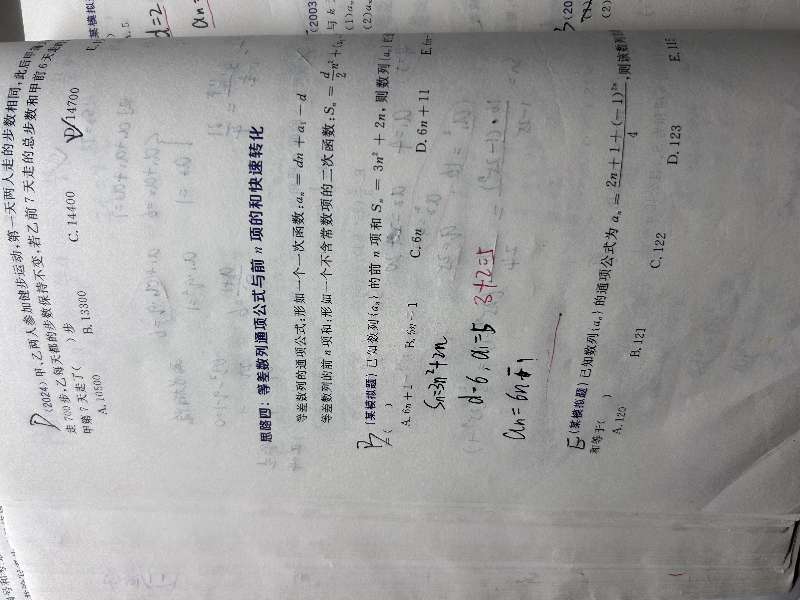 (2024)甲、乙两人参加健步运动,第一天两人走的步数相同,此后甲
走700步,乙每天都的步数保持不变,若乙前7天走的总步数和甲前6天走
甲第7天走了( )步
A.10500 B.13300 C.14400 D.14700
思路四:等差数列通项公式与前n项的和快速转化
等差数列的通项公式:形如一个一次函数:aₙ=dn+a₁-d
等差数列的前n项和:形如一个不含常数项的二次函数:Sₙ=d/2 n²+(a₁
(某模拟题)已知数列{aₙ}的前n项和Sₙ=3n²+2n,则数列{aₙ}
=( )
A.6n+1 B.6n-1 C.6n D.6n+11
Sn=3n²+2n
d=6,a1=5 3+2=5
an=6n-1
(某模拟题)已知数列{aₙ}的通项公式为aₙ=(2n+1+(-1)²ⁿ)/4,则该数列
和等于( )
A.120 B.121 C.122 D.123